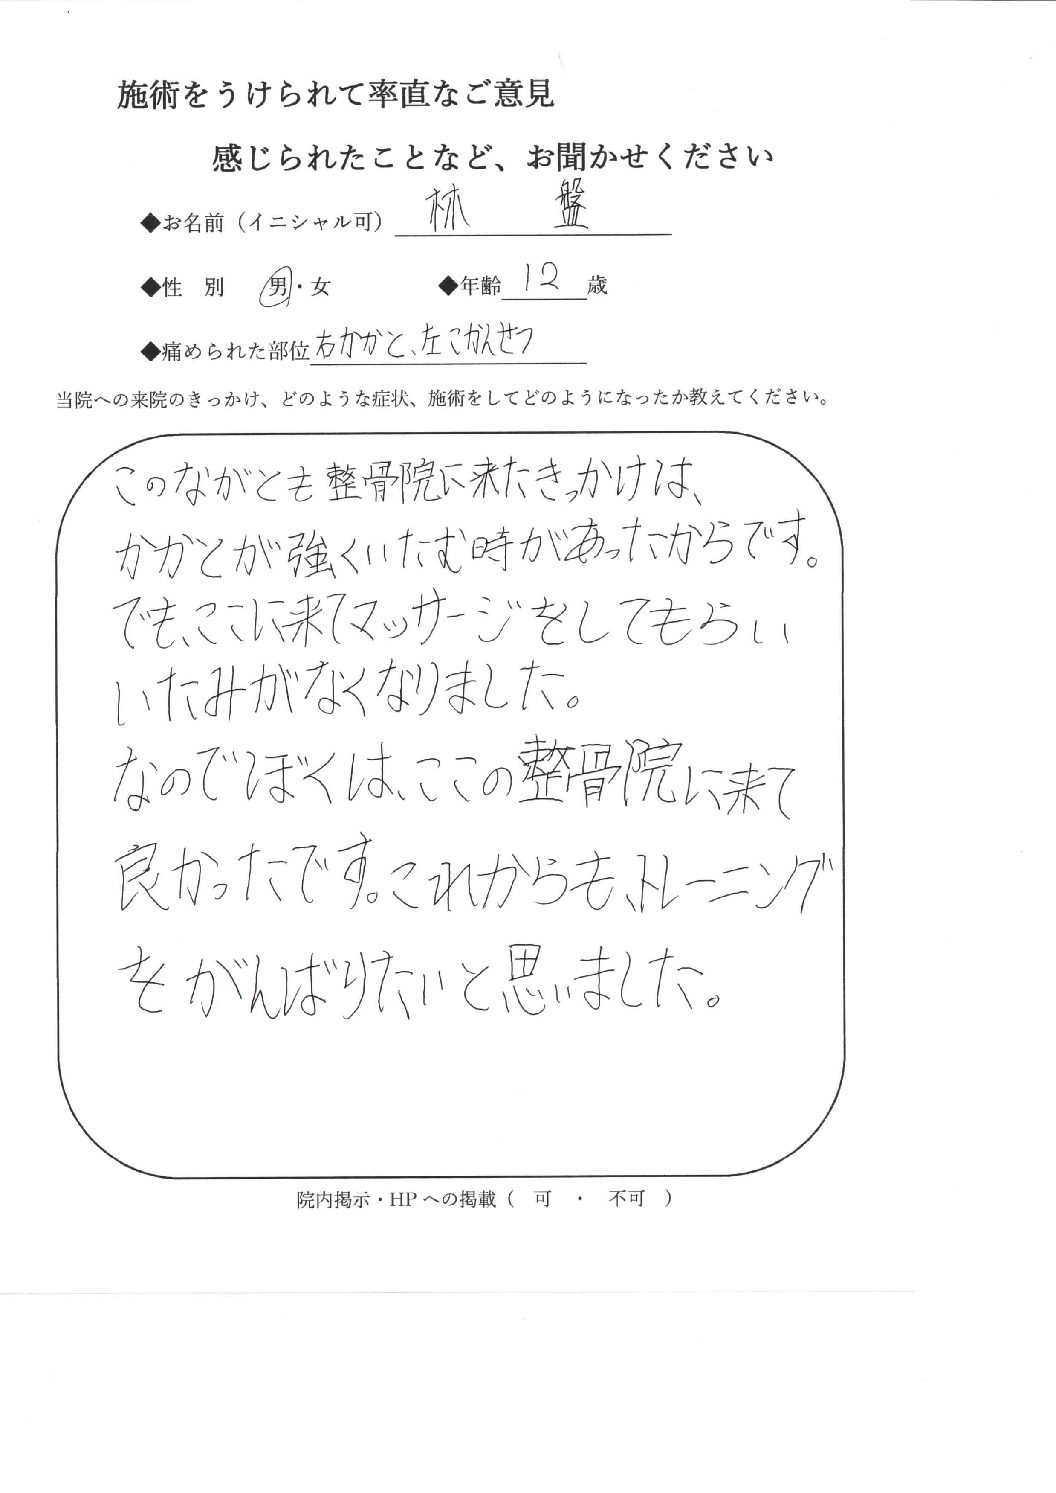 施術をうけられて率直なご意見
感じられたことなど、お聞かせください
◆お名前（イニシャル可） 林 盤
◆性 別 男・女 ◆年齢 12 歳
◆痛められた部位 右かかと、左こかんせつ
当院への来院のきっかけ、どのような症状、施術をしてどのようになったか教えてください。
このながとも整骨院に来たきっかけは、
かかとが強くいたむ時があったからです。
でも、ここに来てマッサージをしてもらい
いたみがなくなりました。
なのでぼくは、ここの整骨院に来て
良かったです。これからも、トレーニング
をがんばりたいと思いました。
院内掲示・HPへの掲載（ 可 ・ 不可 ）